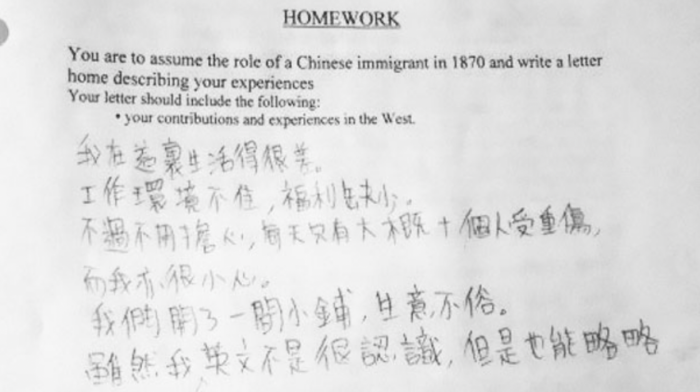 HOMEWORK
You are to assume the role of a Chinese immigrant in 1870 and write a letter
home describing your experiences
Your letter should include the following:
• your contributions and experiences in the West.
我在這裏生活得很差。
工作環境不佳，福利缺少。
不過不用擔心，每天只有大概十個人受重傷，
而我亦很小心。
我們開了一間小鋪，生意不俗。
雖然我英文不是很認識，但是也能略略